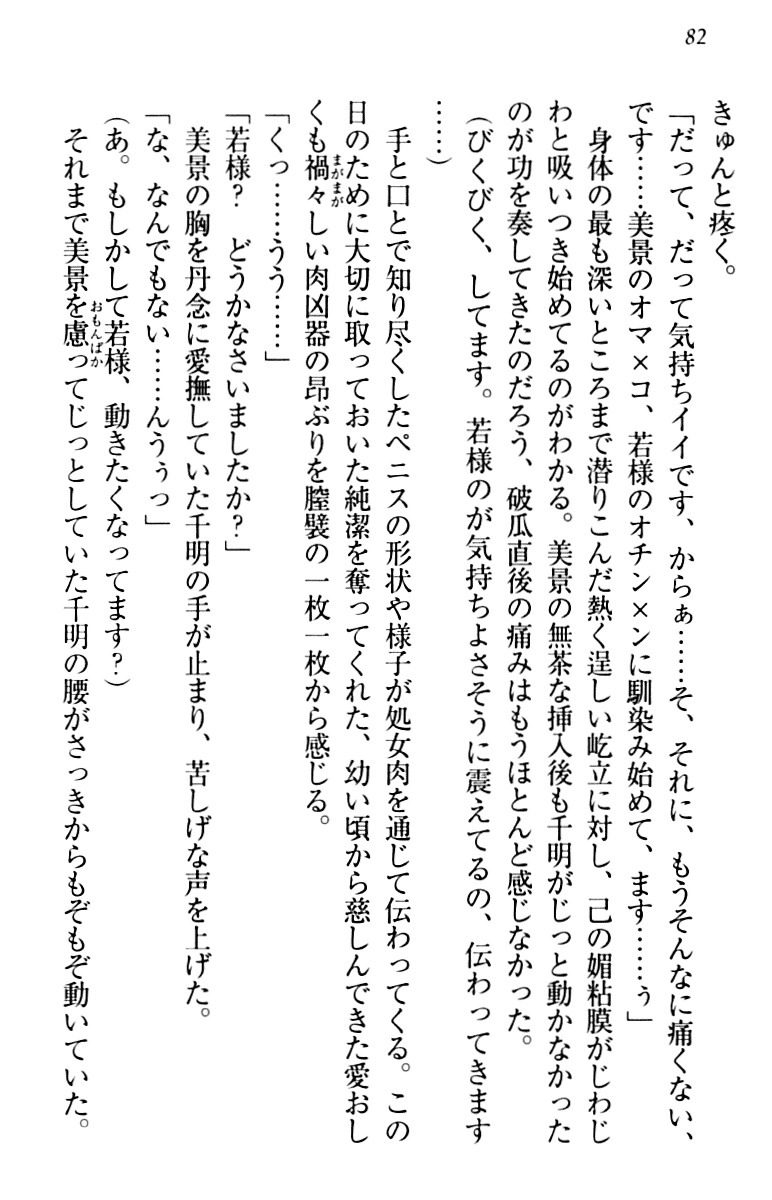 82
きゅんと疼く。
「だって、だって気持ちイイです、からぁ……そ、それに、もうそんなに痛くない、
です……美景のオマ×コ、若様のオチン×ンに馴染み始めて、ます……ぅ」
身体の最も深いところまで潜りこんだ熱く逞しい屹立に対し、己の媚粘膜がじわじ
わと吸いつき始めてるのがわかる。美景の無茶な挿入後も千明がじっと動かなかった
のが功を奏してきたのだろう、破瓜直後の痛みはもうほとんど感じなかった。
(びくびく、してます。若様のが気持ちよさそうに震えてるの、伝わってきます
……)
手と口とで知り尽くしたペニスの形状や様子が処女肉を通じて伝わってくる。この
日のために大切に取っておいた純潔を奪ってくれた、幼い頃から慈しんできた愛おし
くも禍々しい肉凶器の昂ぶりを膣襞の一枚一枚から感じる。
「くっ……うう……」
「若様?　どうかなさいましたか?」
美景の胸を丹念に愛撫していた千明の手が止まり、苦しげな声を上げた。
「な、なんでもない……んうぅっ」
(あ。もしかして若様、動きたくなってます?)
それまで美景を慮ってじっとしていた千明の腰がさっきからもぞもぞ動いていた。